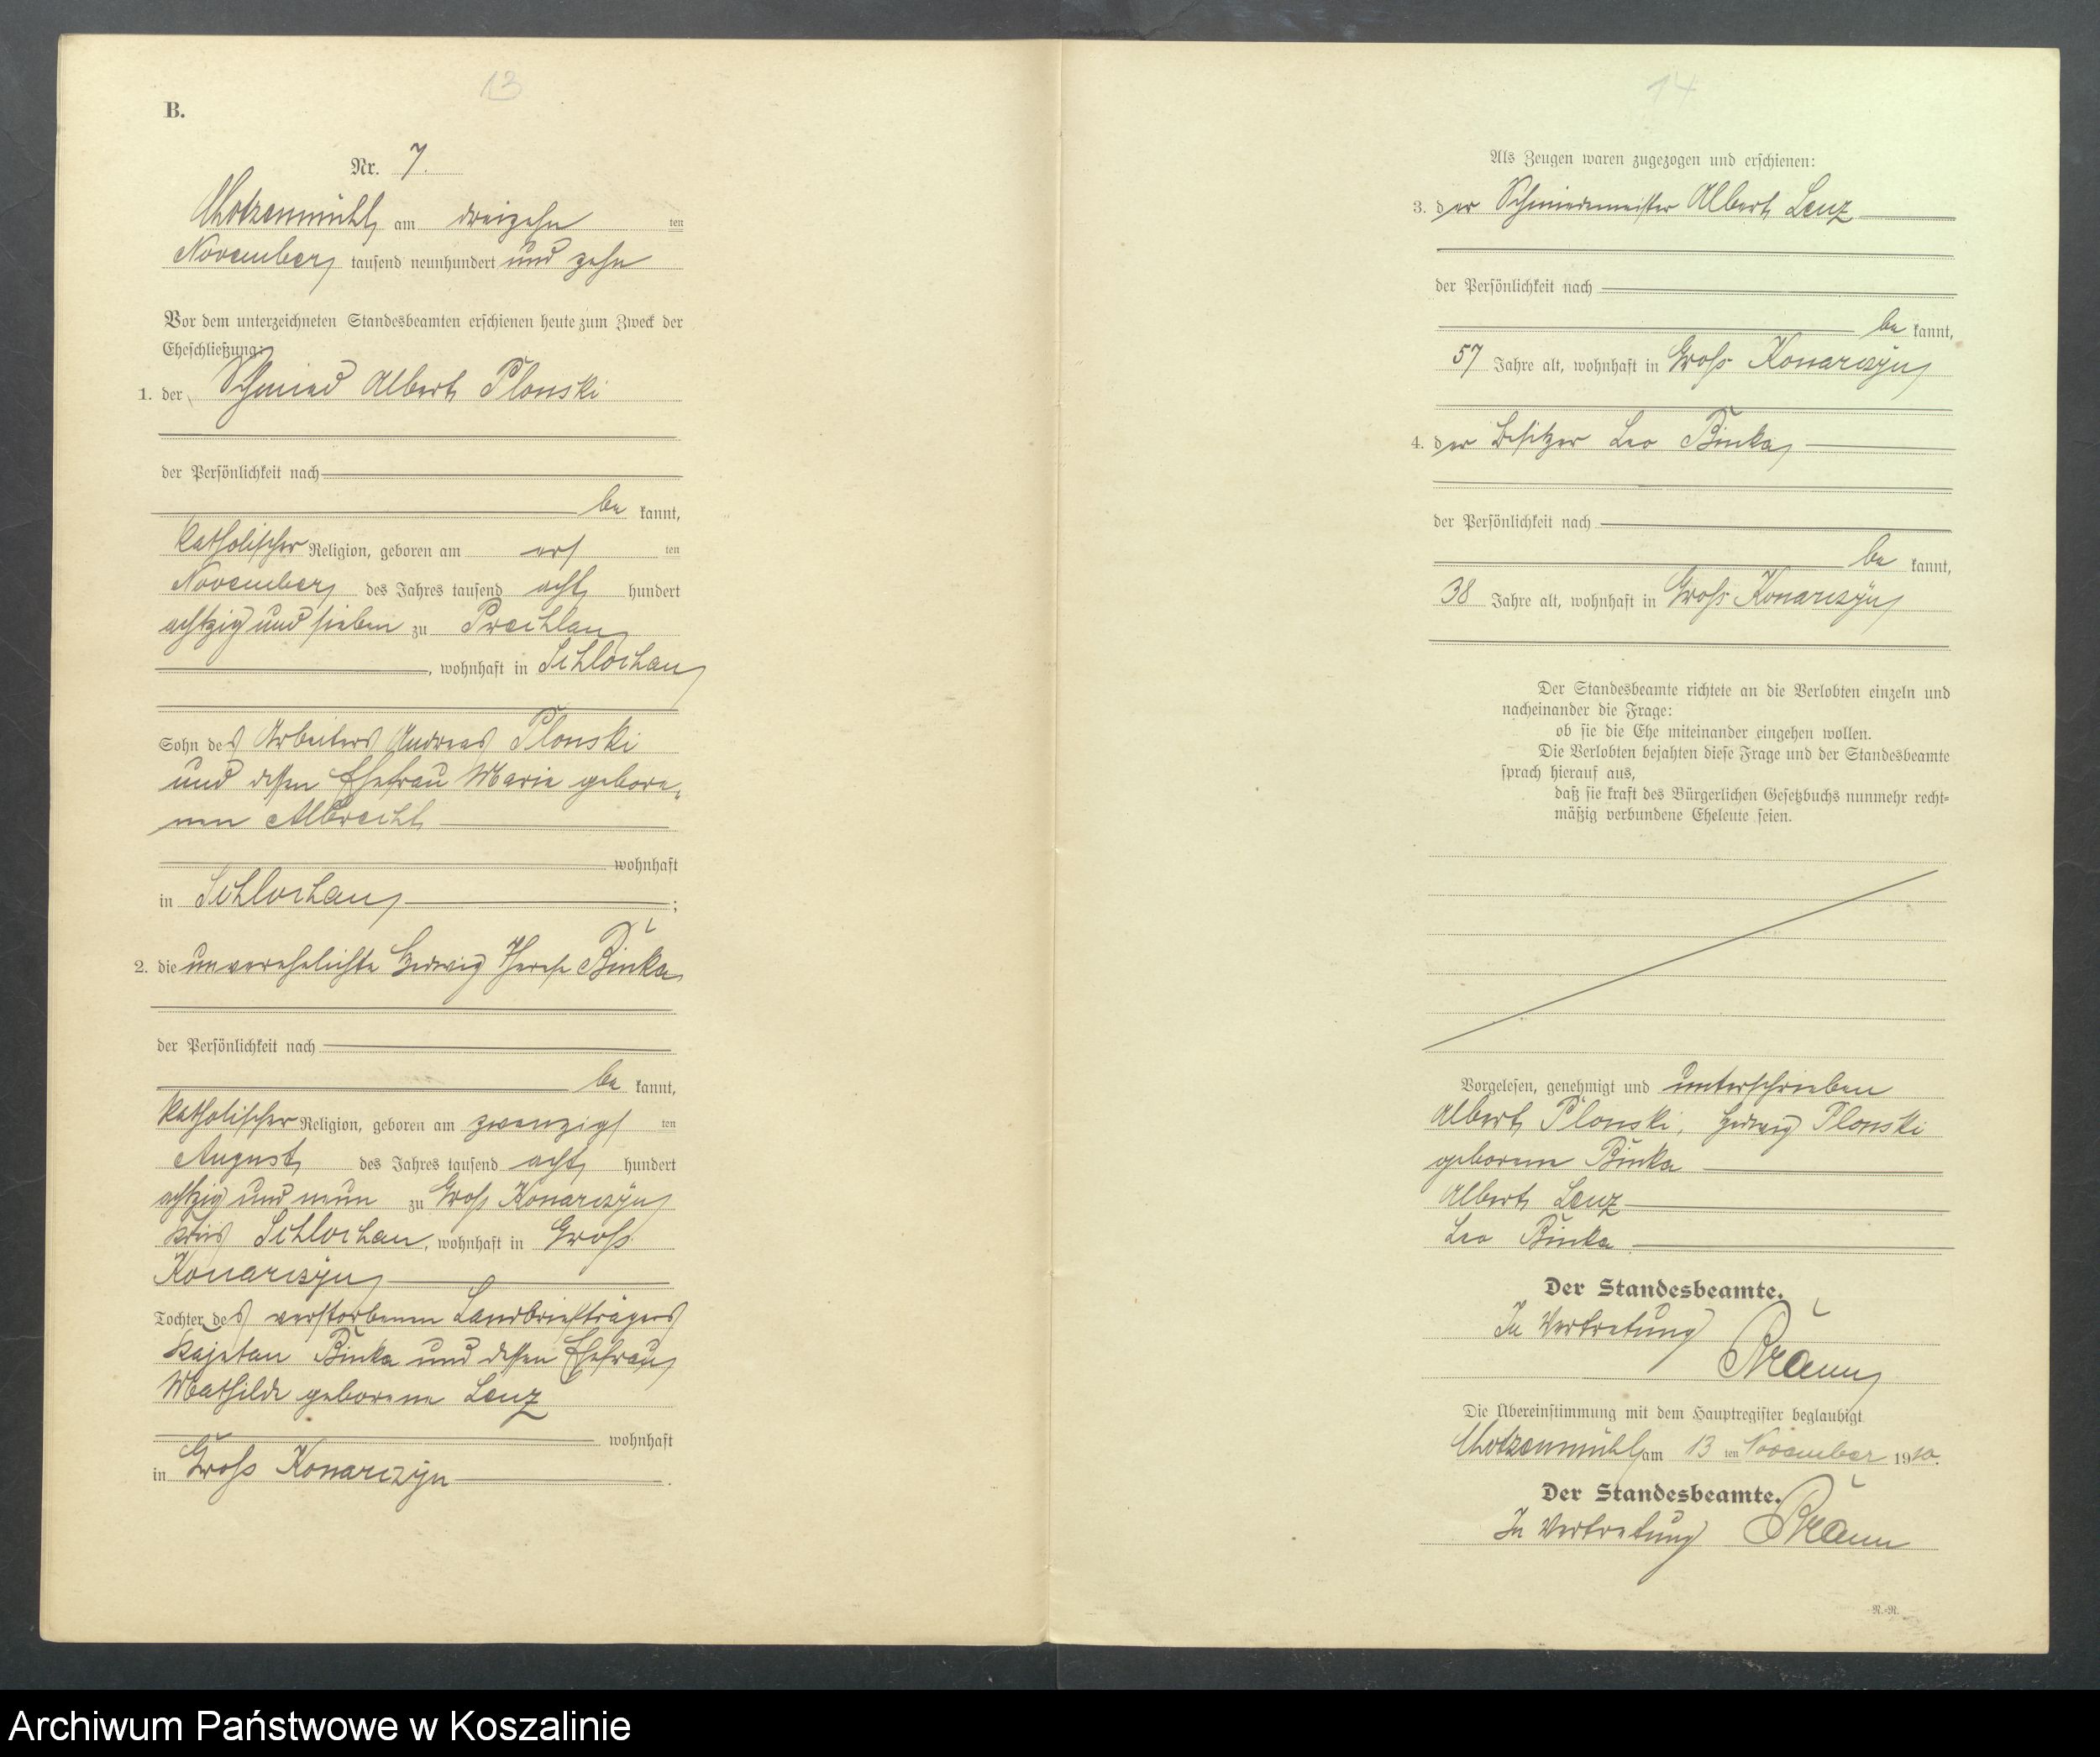 13
B.
Nr. 7.
Chotzenmühl, am dreizehn ten
November tausend neunhundert und zehn
Vor dem unterzeichneten Standesbeamten erschienen heute zum Zweck der
Eheschließung:
1. der Schmied Albert Plonski
der Persönlichkeit nach
be kannt,
katholischer Religion, geboren am elf ten
November des Jahres tausend acht hundert
achtzig und sieben zu Prechlau
, wohnhaft in Schlochau
Sohn des Arbeiters Andreas Plonski
und dessen Ehefrau Marie gebore-
nen Albrecht
wohnhaft
in Schlochau ;
2. die unverehelichte Hedwig Therese Binka
der Persönlichkeit nach
be kannt,
katholischer Religion, geboren am zwanzigs ten
August des Jahres tausend acht hundert
achtzig und neun zu Gross Konarczyn
Kreis Schlochau, wohnhaft in Gross
Konarczyn
Tochter des verstorbenen Landbriefträgers
Kajetan Binka und dessen Ehefrau
Mathilde geborene Lenz
wohnhaft
in Gross Konarczyn .
14
Als Zeugen waren zugezogen und erschienen:
3. der Schmiedemeister Albert Lenz
der Persönlichkeit nach
be kannt,
57 Jahre alt, wohnhaft in Gross Konarczyn
4. der Besitzer Leo Binka
der Persönlichkeit nach
be kannt,
38 Jahre alt, wohnhaft in Gross Konarczyn
Der Standesbeamte richtete an die Verlobten einzeln und
nacheinander die Frage:
ob sie die Ehe miteinander eingehen wollen.
Die Verlobten bejahten diese Frage und der Standesbeamte
sprach hierauf aus,
daß sie kraft des Bürgerlichen Gesetzbuchs nunmehr recht-
mäßig verbundene Eheleute seien.
Vorgelesen, genehmigt und unterschrieben
Albert Plonski, Hedwig Plonski
geborene Binka
Albert Lenz
Leo Binka
Der Standesbeamte.
In Vertretung
Die Übereinstimmung mit dem Hauptregister beglaubigt
Chotzenmühl am 13 ten November 1910.
Der Standesbeamte.
In Vertretung
R.-R.
Archiwum Państwowe w Koszalinie